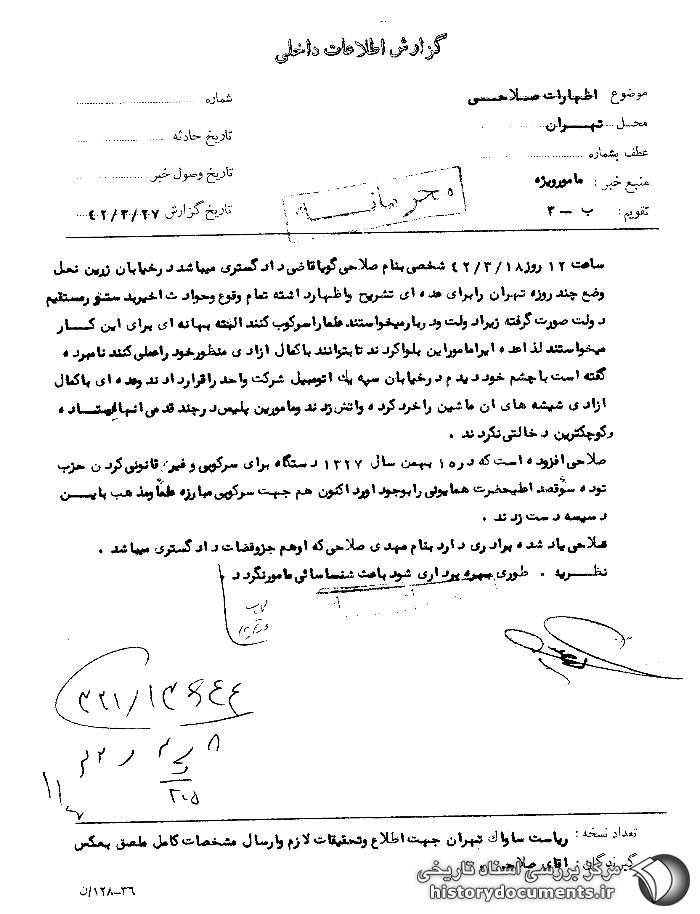 گزارش اطلاعات داخلی
موضوع اظهارات صلاحی
محل تهران
عطف بشماره
منبع خبر : مامورویژه
تقویم : ب - ۳
شماره
تاریخ حادثه
تاریخ وصول خبر
تاریخ گزارش ۴۲/۳/۲۷
محرمانه
ساعت ۱۲ روز ۴۲/۳/۱۸ شخصی بنام صلاحی گویا قاضی دادگستری میباشد در خیابان زرین نعل
وضع چند روزه تهران را برای عده ای تشریح واظهار داشته تمام وقوع وحوادث اخیر بدستور مستقیم
دولت صورت گرفته زیرا دولت ودربار میخواستند علما را سرکوب کنند البته بهانه ای برای این کار
میخواستند لذا عده ای را مامور این بلوا کردند تا بتوانند باکمال ازادی منظور خود را عملی کنند نامبرده
گفته است با چشم خود دیدم در خیابان سپه یک اتومبیل شرکت واحد را قرار دادند وعده ای باکمال
ازادی شیشه های ان ماشین را خرد کرده واتش زدند ومامورین پلیس در چند قدمی انها ایستاده
وکوچکترین دخالتی نکردند .
صلاحی افزوده است که در ۱۵ بهمن سال ۱۳۲۷ دستگاه برای سرکوبی و غیر قانونی کردن حزب
توده سوٌقصد اعلیحضرت همایونی را بوجود اورد اکنون هم جهت سرکوبی مبارزه علما ومذهب باین
دسیسه دست زدند .
صلاحی یاد شده برادری دارد بنام مهدی صلاحی که اوهم جزو قضات دادگستری میباشد .
نظریه . طوری بهره برداری شود باعث شناسائی مامور نگردد .
۳۲۱/۱۳۶۴۴
۲۰۵
تعداد نسخه :
گیرندگان :
ریاست ساواک تهران جهت اطلاع وتحقیقات لازم وارسال مشخصات کامل ملصق بعکس
اقای صلاحی .
۳۶-۱۲۸/ن
مرکز بررسی اسناد تاریخی
historydocuments.ir